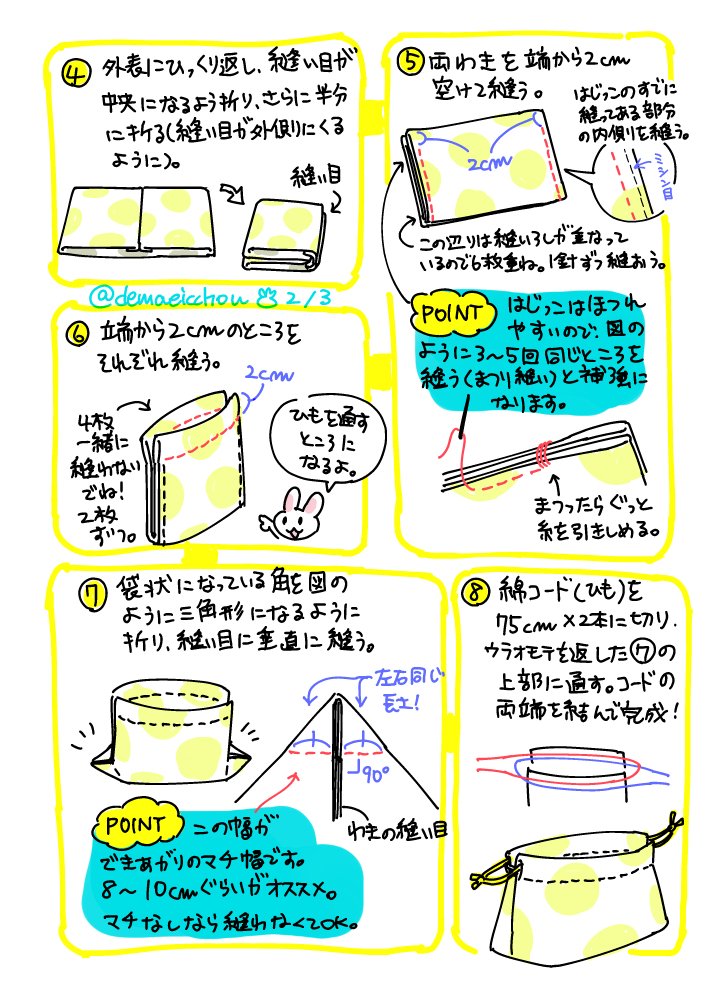 ④ 外表にひっくり返し、縫い目が
中央になるよう折り、さらに半分
に折る(縫い目が外側にくる
ように)。
縫い目
@demaeicchou 2/3
⑤ 両わきを端から2cm
空けて縫う。
はじっこのすでに
縫ってある部分
の内側を縫う。
2cm
ミシン目
この辺りは縫いろしが重なって
いるので6枚重ね。1針ずつ縫おう。
POINT はじっこはほつれ
やすいので、図の
ように3〜5回同じところを
縫う(まつり縫い)と補強に
なります。
まつったらぐっと
糸を引きしめる。
⑥ 端から2cmのところを
それぞれ縫う。
2cm
4枚
一緒に
縫わない
でね!
2枚
ずつ。
ひもを通す
ところに
なるよ。
⑦ 袋状になっている角を図の
ように三角形になるように
折り、縫い目に垂直に縫う。
左右同じ
長さ!
90°
わきの縫い目
POINT この幅が
できあがりのマチ幅です。
8〜10cmぐらいがオススメ。
マチなしなら縫わなくてOK。
⑧ 綿コード(ひも)を
75cm×2本に切り、
ウラオモテを返した⑦の
上部に通す。コードの
両端を結んで完成!